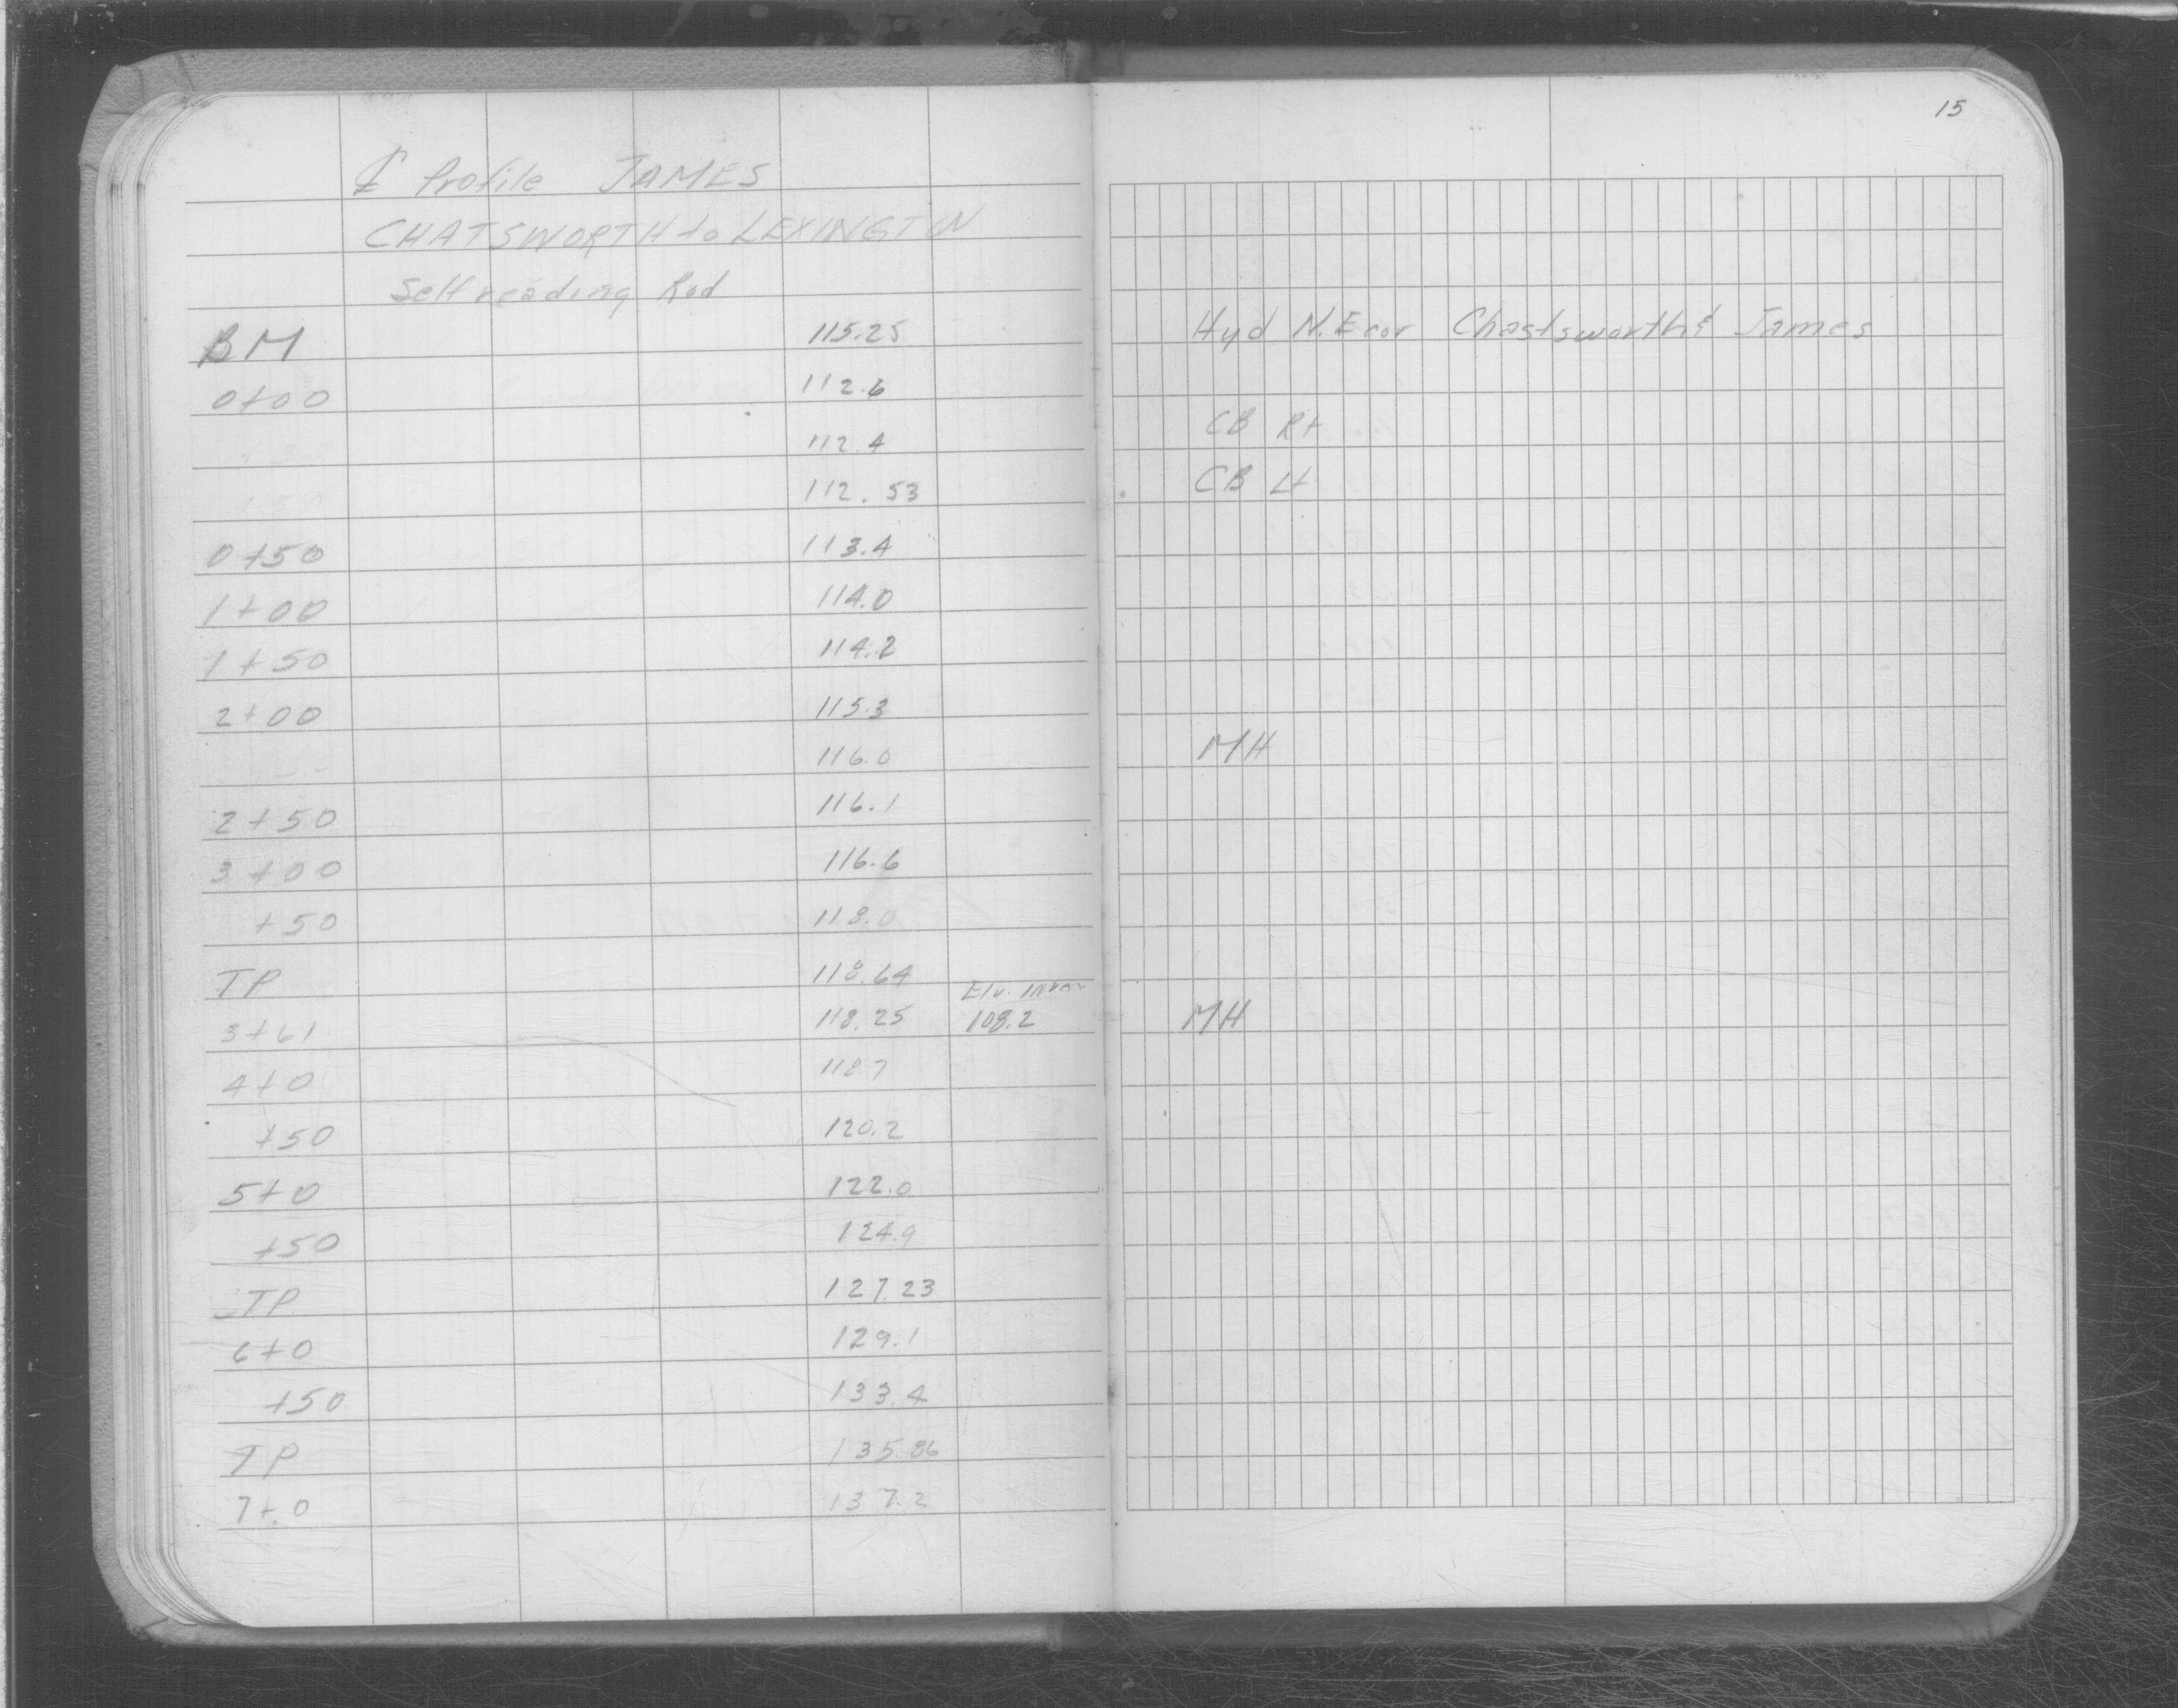 15
℄ Profile JAMES
CHATSWORTH to LEXINGTON
Self reading Rod
BM 115.25 Hyd N.E cor Chastsworth & James
0+00 112.6
112.4 CB Rt
112.53 CB Lt
0+50 113.4
1+00 114.0
1+50 114.2
2+00 115.3
116.0 MH
2+50 116.1
3+00 116.6
+50 118.0
TP 118.64
Elv.
3+61 118.25 108.2 MH
4+0 118.7
+50 120.2
5+0 122.0
+50 124.9
TP 127.23
6+0 129.1
+50 133.4
TP 135.86
7+0 137.2